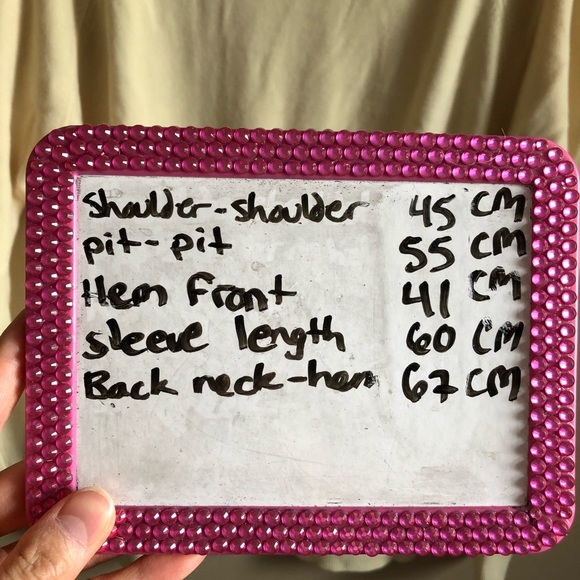 Shoulder-shoulder 45 CM
pit-pit 55 CM
Hem Front 41 CM
sleeve length 60 CM
Back neck-hem 67 CM